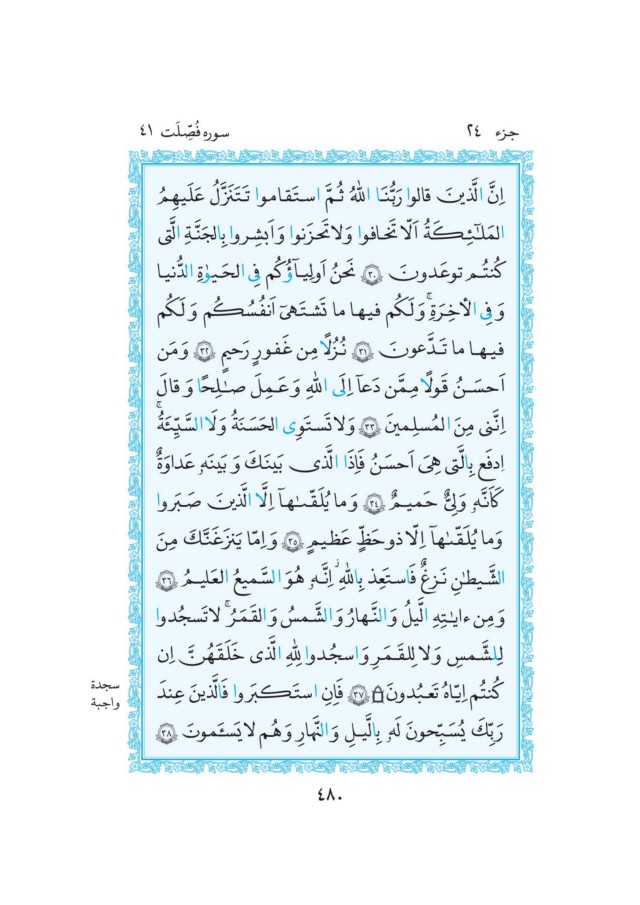 جزء ٢٤
سوره فُصِّلَت ٤١
اِنَّ الَّذینَ قالوا رَبُّنَا اللهُ ثُمَّ استَقاموا تَتَنَزَّلُ عَلَیهِمُ
المَلٰٓئِكَةُ اَلّا تَخافوا وَلا تَحزَنوا وَاَبشِروا بِالجَنَّةِ الَّتی
كُنتُم توعَدونَ ٣٠ نَحنُ اَولِیآؤُكُم فِی الحَیوٰةِ الدُّنیا
وَ فِی الءاخِرَةِۚ وَلَكُم فیها ما تَشتَهیٓ اَنفُسُكُم وَلَكُم
فیها ما تَدَّعونَ ٣١ نُزُلًا مِن غَفورٍ رَحیمٍ ٣٢ وَ مَن
اَحسَنُ قَولًا مِمَّن دَعآ اِلَی اللهِ وَ عَمِلَ صٰلِحًا وَ قالَ
اِنَّنی مِنَ المُسلِمینَ ٣٣ وَلا تَستَوِی الحَسَنَةُ وَلَا السَّیِّئَةُۚ
اِدفَع بِالَّتی هِیَ اَحسَنُ فَاِذَا الَّذی بَینَكَ وَ بَینَهٗ عَداوَةٌ
كَاَنَّهٗ وَلِیٌّ حَمیمٌ ٣٤ وَ ما یُلَقّٰىهآ اِلَّا الَّذینَ صَبَروا
وَما یُلَقّٰىهآ اِلّا ذو حَظٍّ عَظیمٍ ٣٥ وَ اِمّا یَنزَغَنَّكَ مِنَ
الشَّیطٰنِ نَزغٌ فَاستَعِذ بِاللهِۖ اِنَّهٗ هُوَ السَّمیعُ العَلیمُ ٣٦
وَ مِن ءایٰتِهِ الَّیلُ وَ النَّهارُ وَ الشَّمسُ وَ القَمَرُۚ لا تَسجُدوا
لِلشَّمسِ وَلا لِلقَمَرِ وَ اسجُدوا لِلّٰهِ الَّذی خَلَقَهُنَّ اِن
كُنتُم اِیّاهُ تَعبُدونَ۩ ٣٧ فَاِنِ استَكبَروا فَالَّذینَ عِندَ
سجدة
واجبة
رَبِّكَ یُسَبِّحونَ لَهٗ بِالَّیلِ وَ النَّهارِ وَ هُم لا یَسـَٔمونَ ٣٨
٤٨٠